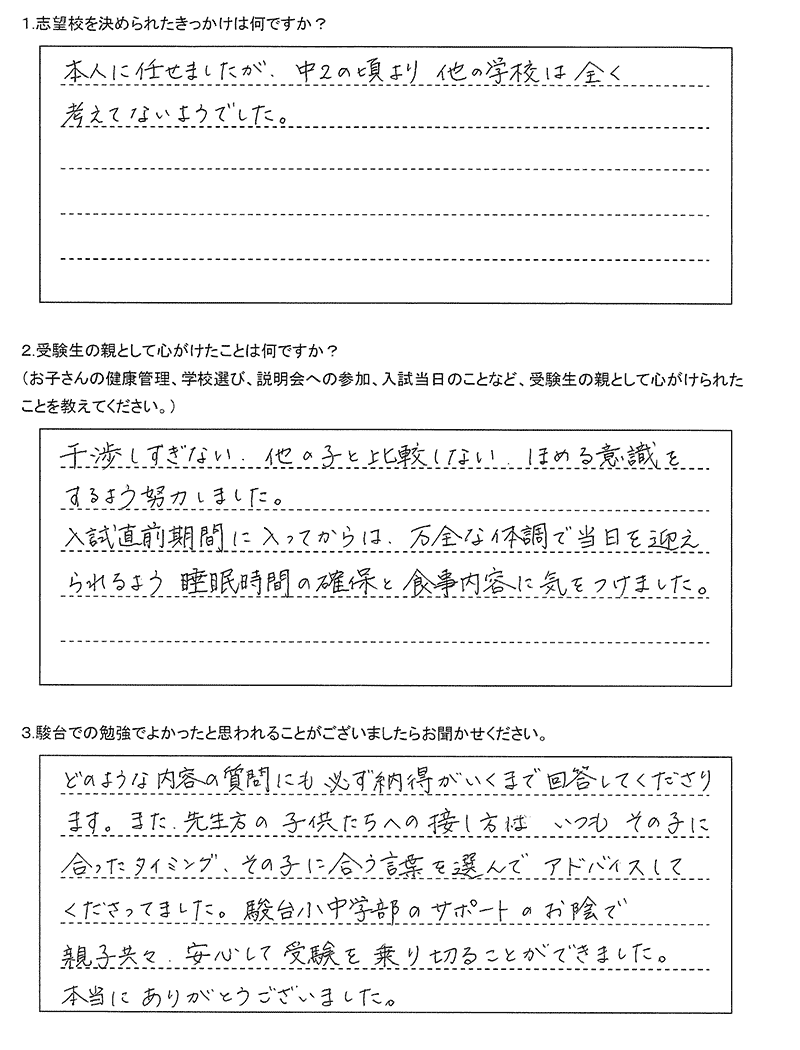 1.志望校を決められたきっかけは何ですか？
本人に任せましたが、中2の頃より 他の学校は 全く
考えてないようでした。
2.受験生の親として心がけたことは何ですか？
（お子さんの健康管理、学校選び、説明会への参加、入試当日のことなど、受験生の親として心がけられた
ことを教えてください。）
干渉しすぎない、他の子と比較しない、ほめる意識を
するよう努力しました。
入試直前期間に入ってからは、万全な体調で当日を迎え
られるよう 睡眠時間の確保と食事内容に気をつけました。
3.駿台での勉強でよかったと思われることがございましたらお聞かせください。
どのような内容の質問にも必ず納得がいくまで回答してくださり
ます。また、先生方の子供たちへの接し方は いつも その子に
合ったタイミング、その子に合う言葉を選んで アドバイスして
くださってました。駿台小中学部のサポートのお陰で
親子共々、安心して受験を乗り切ることができました。
本当にありがとうございました。